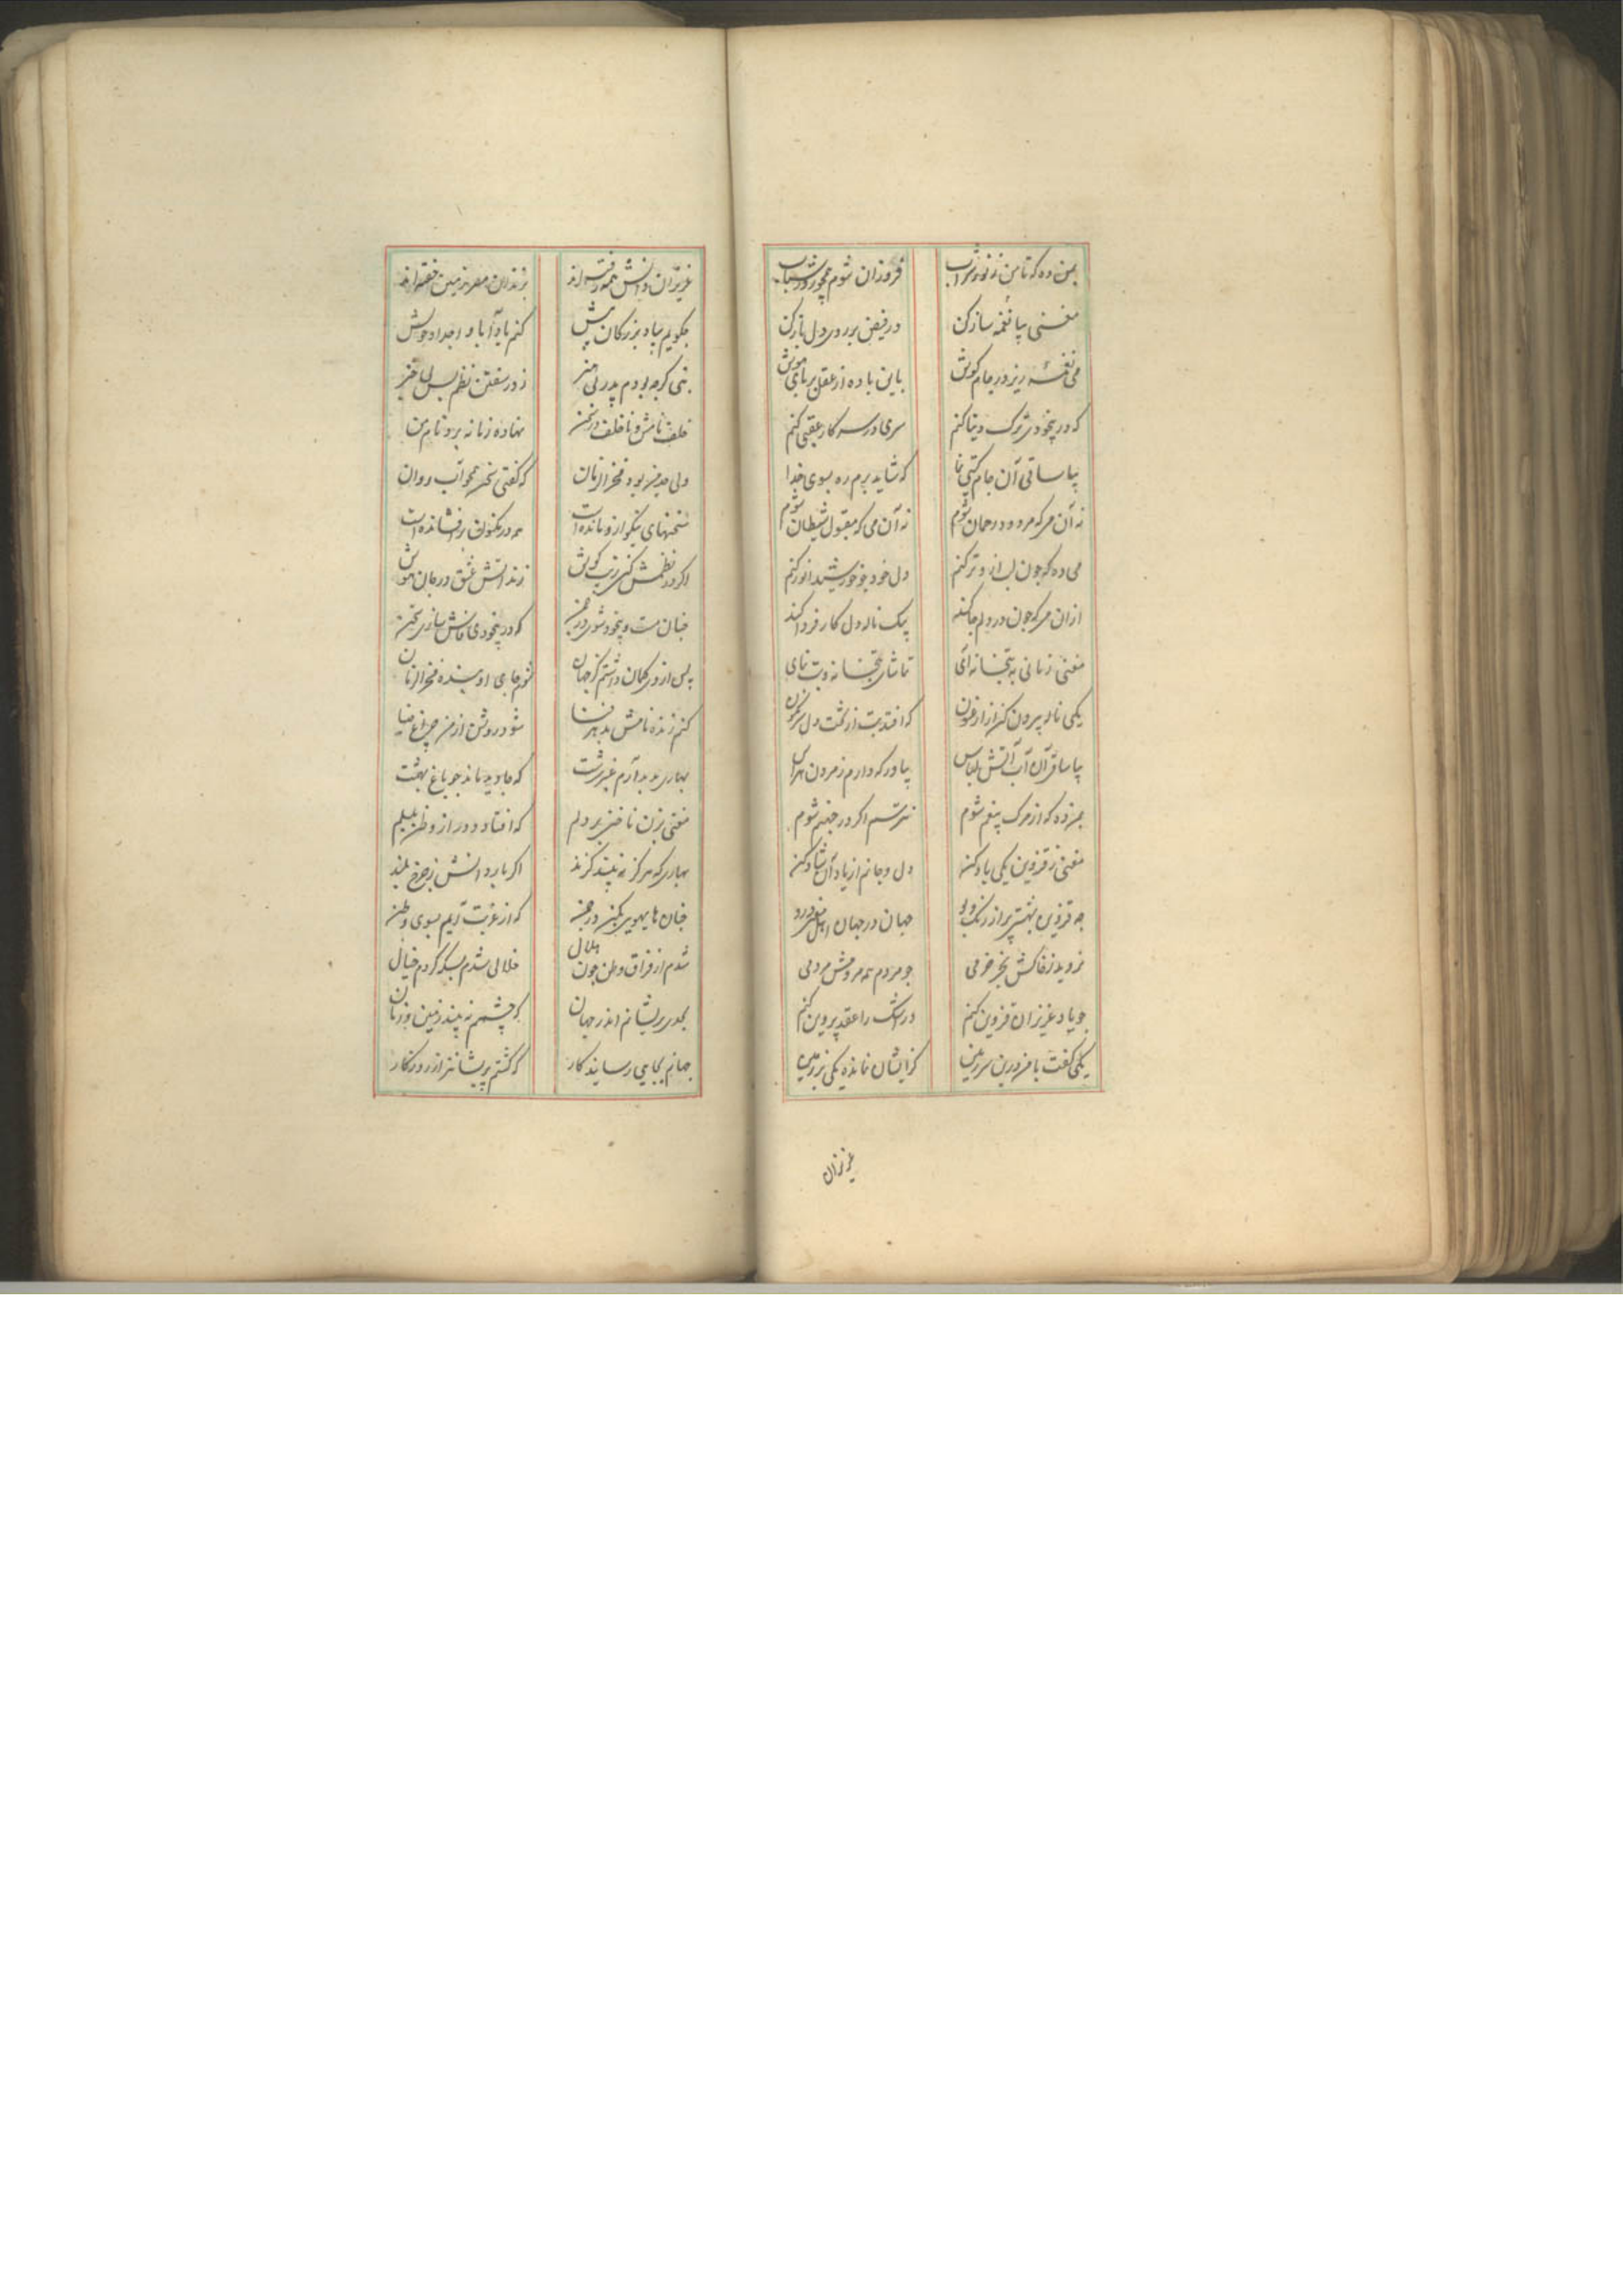 بمن ده که تا من ز نور شراب فروزان شوم همچو روز شباب
مغنی بیا نغمه ساز کن در فیض بر روی دل باز کن
می نغمه ریز در جام گوش باین باده از عقل بربای هوش
که در بیخودی ترک دنیا کنم سری در سر کار عقبی کنم
بیا ساقی آن جام گیتی نما که شاید برم ره بسوی خدا
نه آن می که مردود رحمان شوم نه آن می که مقبول شیطان شوم
می ده که چون لب ازو تر کنم دل خود چو خورشید انور کنم
ازان می که چون در دلم جا کند بیک ناله دل کار فردا کند
مغنی زمانی به بتخانه آی تماشای بتخانه و بت نمای
یکی ناله بیرون کن از ارغنون که افتد بت از تخت دل سرنگون
بیا ساقی آن آب آتش لباس بیاور که دارم ز مردن هراس
بمن ده که از مرگ بیغم شوم نترسم اگر در جهنم شوم
مغنی ز قزوین یکی یاد کن دل و جانم از یاد آن شاد کن
چه قزوین بهشتی پر از رنگ و بو جهان در جهان اهل درو
نروید ز خاکش بجز خرمی چو مردم همه مردمش مردمی
چو یاد عزیزان قزوین کنم در اشک را عقد پروین کنم
یکی گفت با من درین سرزمین کزایشان نمانده یکی بر زمین
عزیزان
عزیزان دانش همه رفته اند بزندان زمین خفته اند
چگویم بیاد بزرگان پیش کنم یاد آبا و اجداد خویش
بنی گرچه بودم پدر ز در سفتن نظم بس
خلف نامش و ناخلف در سخن نهاده زمانه برو نام من
ولی جد من بود فخر الزمان که گفتی سخن همچو آب روان
سخنهای نیکو ازو مانده است همه در مکنون برافشانده است
اگر در نظمش کنی زیب گوش زند آتش عشق در جان هوش
چنان مست و بیخود شوی در سخن که در بیخودی سازی سخن
پس از وی گمان داشتم کز جهان شوم جای او بنده فخر الزمان
کنم زنده نامش شود روشن از من چراغ ضیا
بهاری پدید آرم عنبر سرشت که جاوید ماند چو باغ بهشت
مغنی بزن ناخنی بر دلم که افتاده دور از وطن بلبلم
بهاری که هرگز نه بیند گزند اگر بارد آتش ز چرخ بلند
چنان هایهویی بکن در چمن که از غربت آیم بسوی وطن
شدم از فراق وطن چون هلال خلالی شدم بسکه کردم خیال
بحدی پریشانم اندر جهان که چشمم نه بیند زمین و زمان
جهانم بجایی رسانید کار که گشتم پریشانتر از روزگار